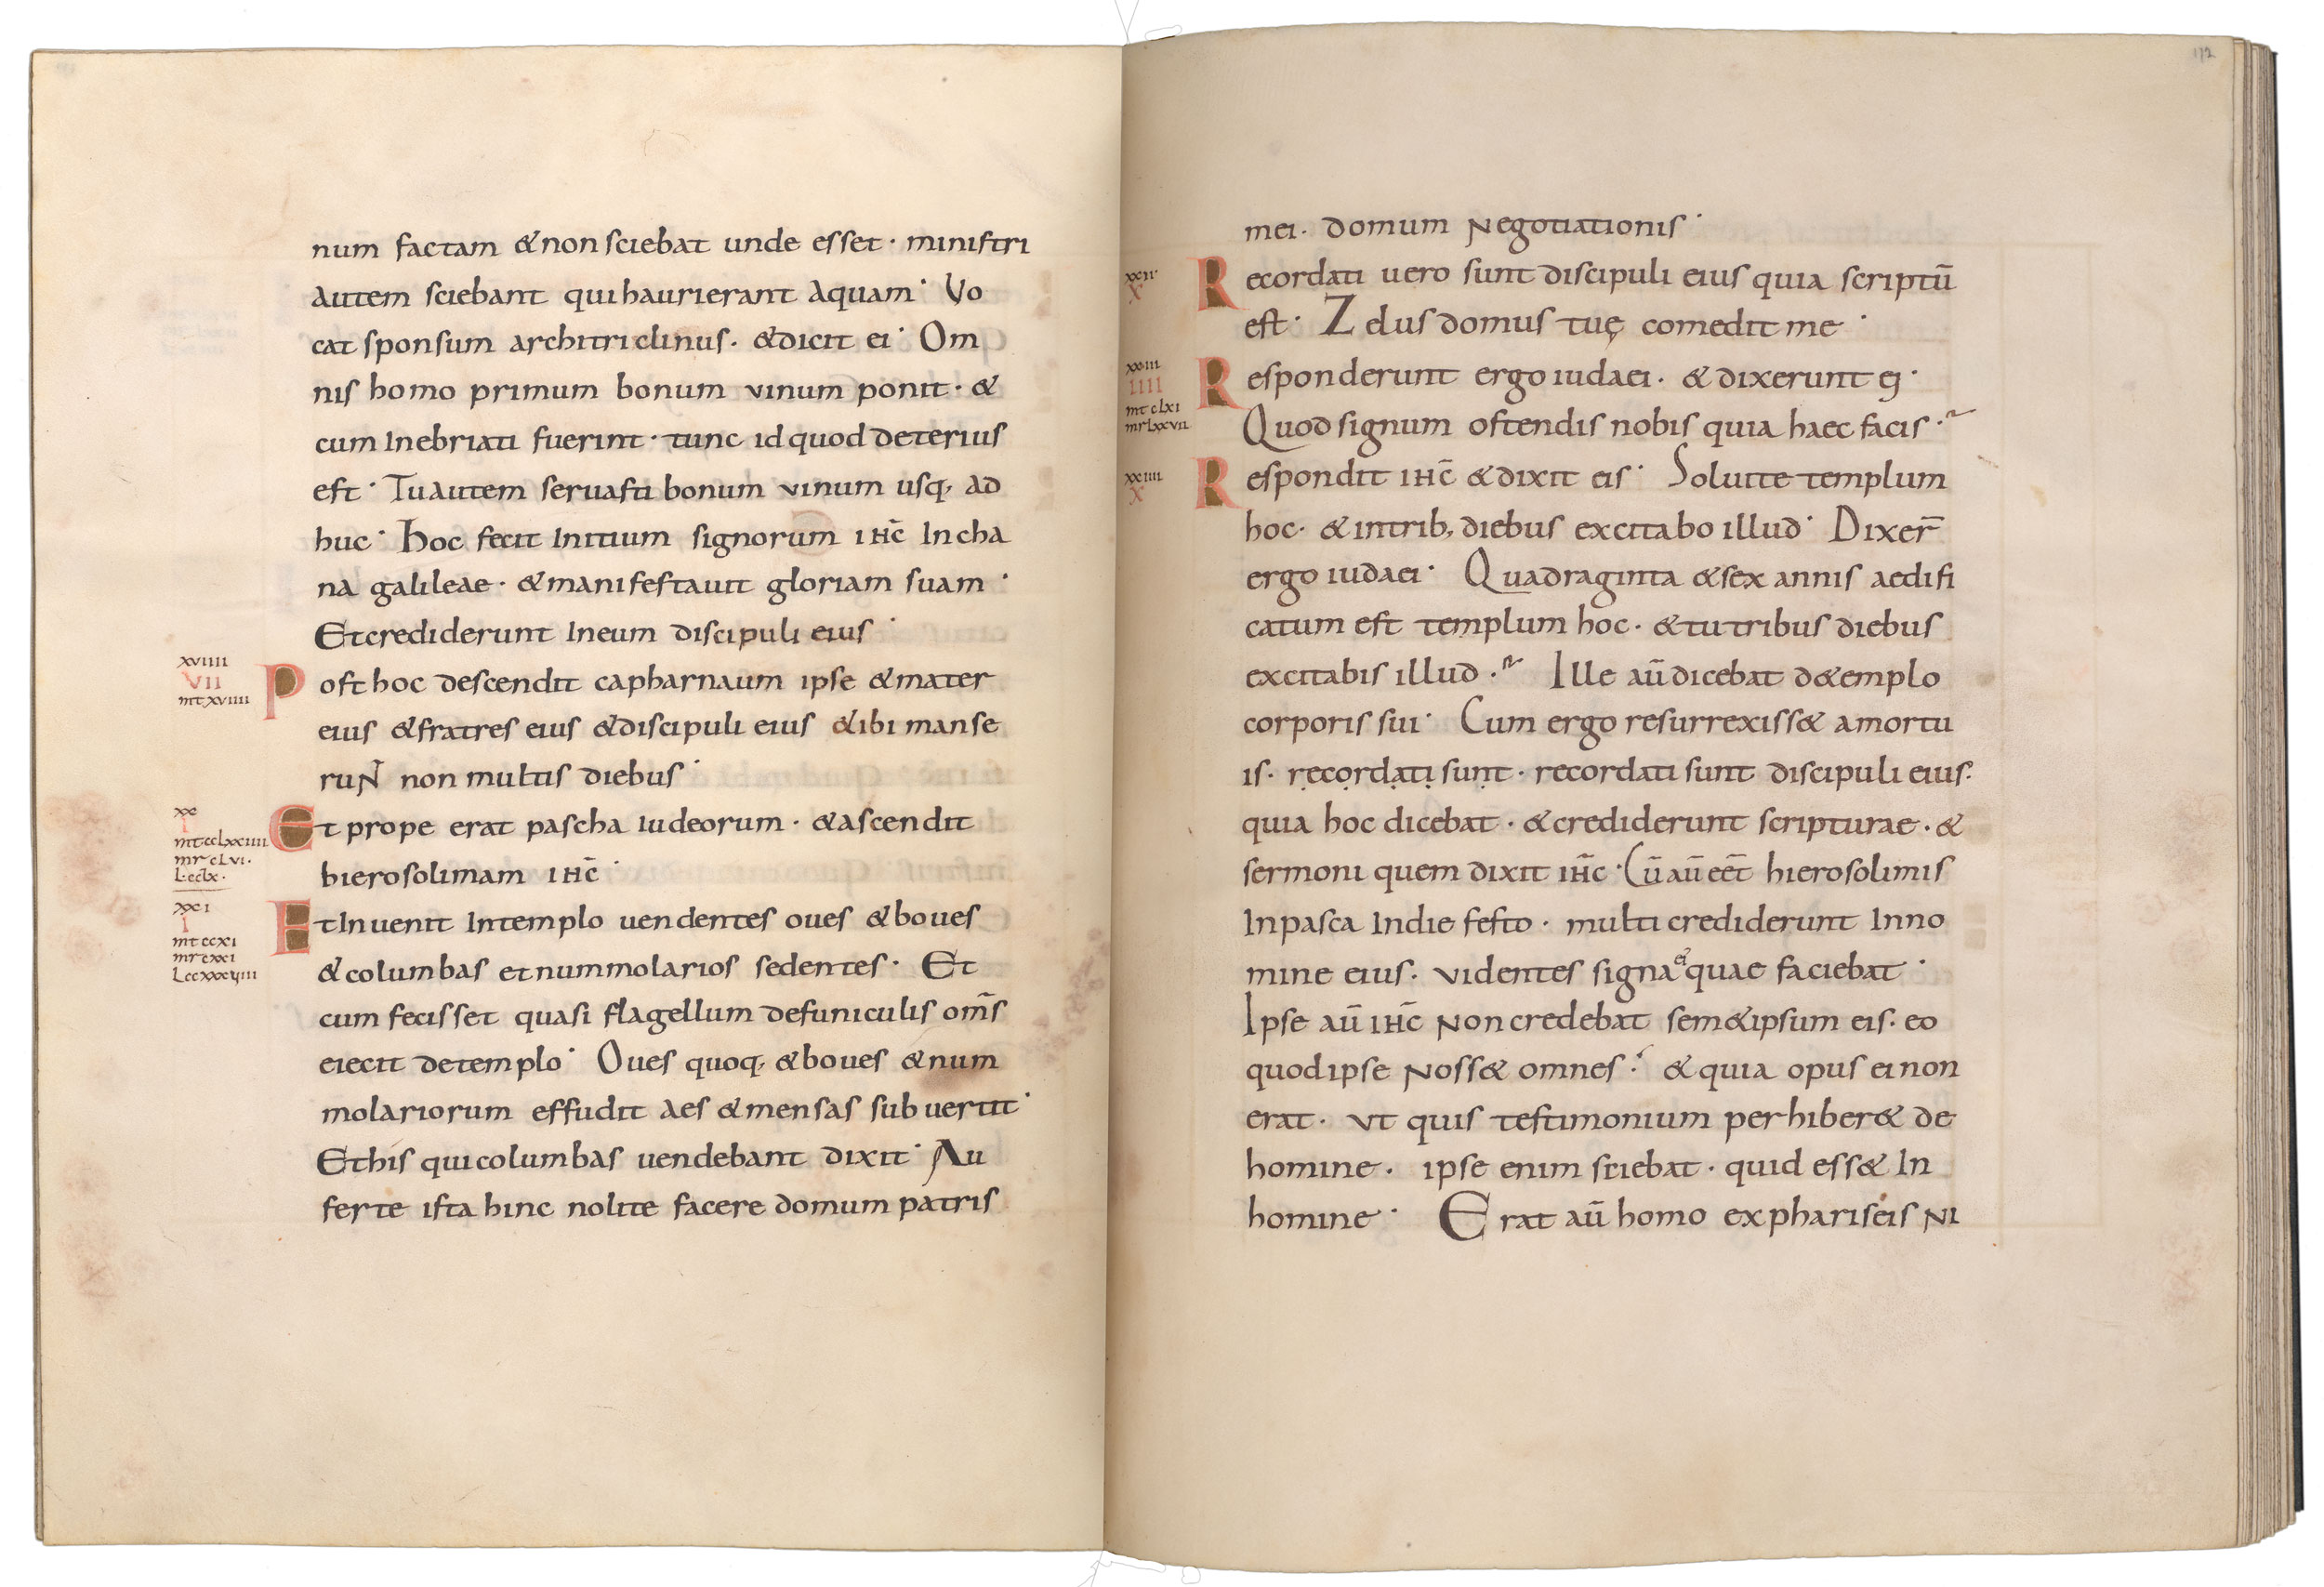 num factam & non sciebat unde esset · ministri
autem sciebant qui haurierant aquam · Vo
cat sponsum architriclinus · & dicit ei · Om
nis homo primum bonum vinum ponit · &
cum inebriati fuerint · tunc id quod deterius
est · Tu autem servasti bonum vinum usq; ad
huc · Hoc fecit initium signorum ihc̅ in cha
na galileae · & manifestavit gloriam suam ·
Et crediderunt in eum discipuli eius ·
xviiii
VII
mt xviiii
Post hoc descendit capharnaum ipse & mater
eius & fratres eius & discipuli eius & ibi manse
ruN̅ non multis diebus ·
xx
I
mt cclxxiiii
mr clvi ·
l · cclx ·
Et prope erat pascha iudeorum · & ascendit
hierosolimam ihc̅ ·
xxi
I
mt ccxi
mr cxxi
l ccxxxviiii
Et invenit in templo vendentes oves & boves
& columbas et nummolarios sedentes · Et
cum fecisset quasi flagellum de funiculis om̅s
eiecit de templo · Oves quoq; & boves & num
molariorum effudit aes & mensas subvertit ·
Et his qui columbas vendebant dixit · Au
ferte ista hinc nolite facere domum patris
172
mei · domum negotiationis ·
xxii
X
Recordati vero sunt discipuli eius quia scriptu̅
est · Zelus domus tuę comedit me ·
xxiii
IIII
mt clxi
mr lxxvii
Responderunt ergo iudaei · & dixerunt ei ·
Quod signum ostendis nobis quia haec facis ·~
xxiiii
X
Respondit ihc̅ & dixit eis · Solvite templum
hoc · & in trib; diebus excitabo illud · Dixer̅
ergo iudaei · Quadraginta & sex annis aedifi
catum est templum hoc · & tu tribus diebus
excitabis illud ·~ Ille au̅ dicebat d& emplo
corporis sui · Cum ergo resurrexiss& a mortu
is · ṛẹcọrḍạtị sụnṭ · recordati sunt discipuli eius ·
quia hoc dicebat · & crediderunt scripturae · &
sermoni quem dixit ihc̅ · Cu̅ au̅ ee̅t hierosolimis
in pasca in die festo · multi crediderunt in no
mine eius · videntes signa ei' quae faciebat ·
Ipse au̅ ihc̅ non credebat sem&ipsum eis · eo
quod ipse noss& omnes · & quia opus ei non
erat · ut quis testimonium perhiber& de
homine · ipse enim sciebat · quid ess& in
homine · Erat au̅ homo ex phariseis ni